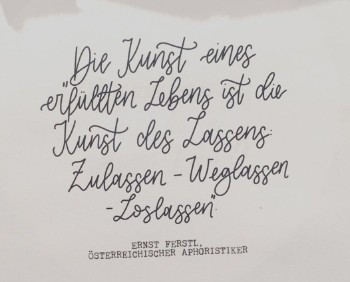 Die Kunst eines
"erfüllten Lebens ist die
Kunst des Lassens:
Zulassen - Weglassen
- Loslassen".
ERNST FERSTL,
ÖSTERREICHISCHER APHORISTIKER